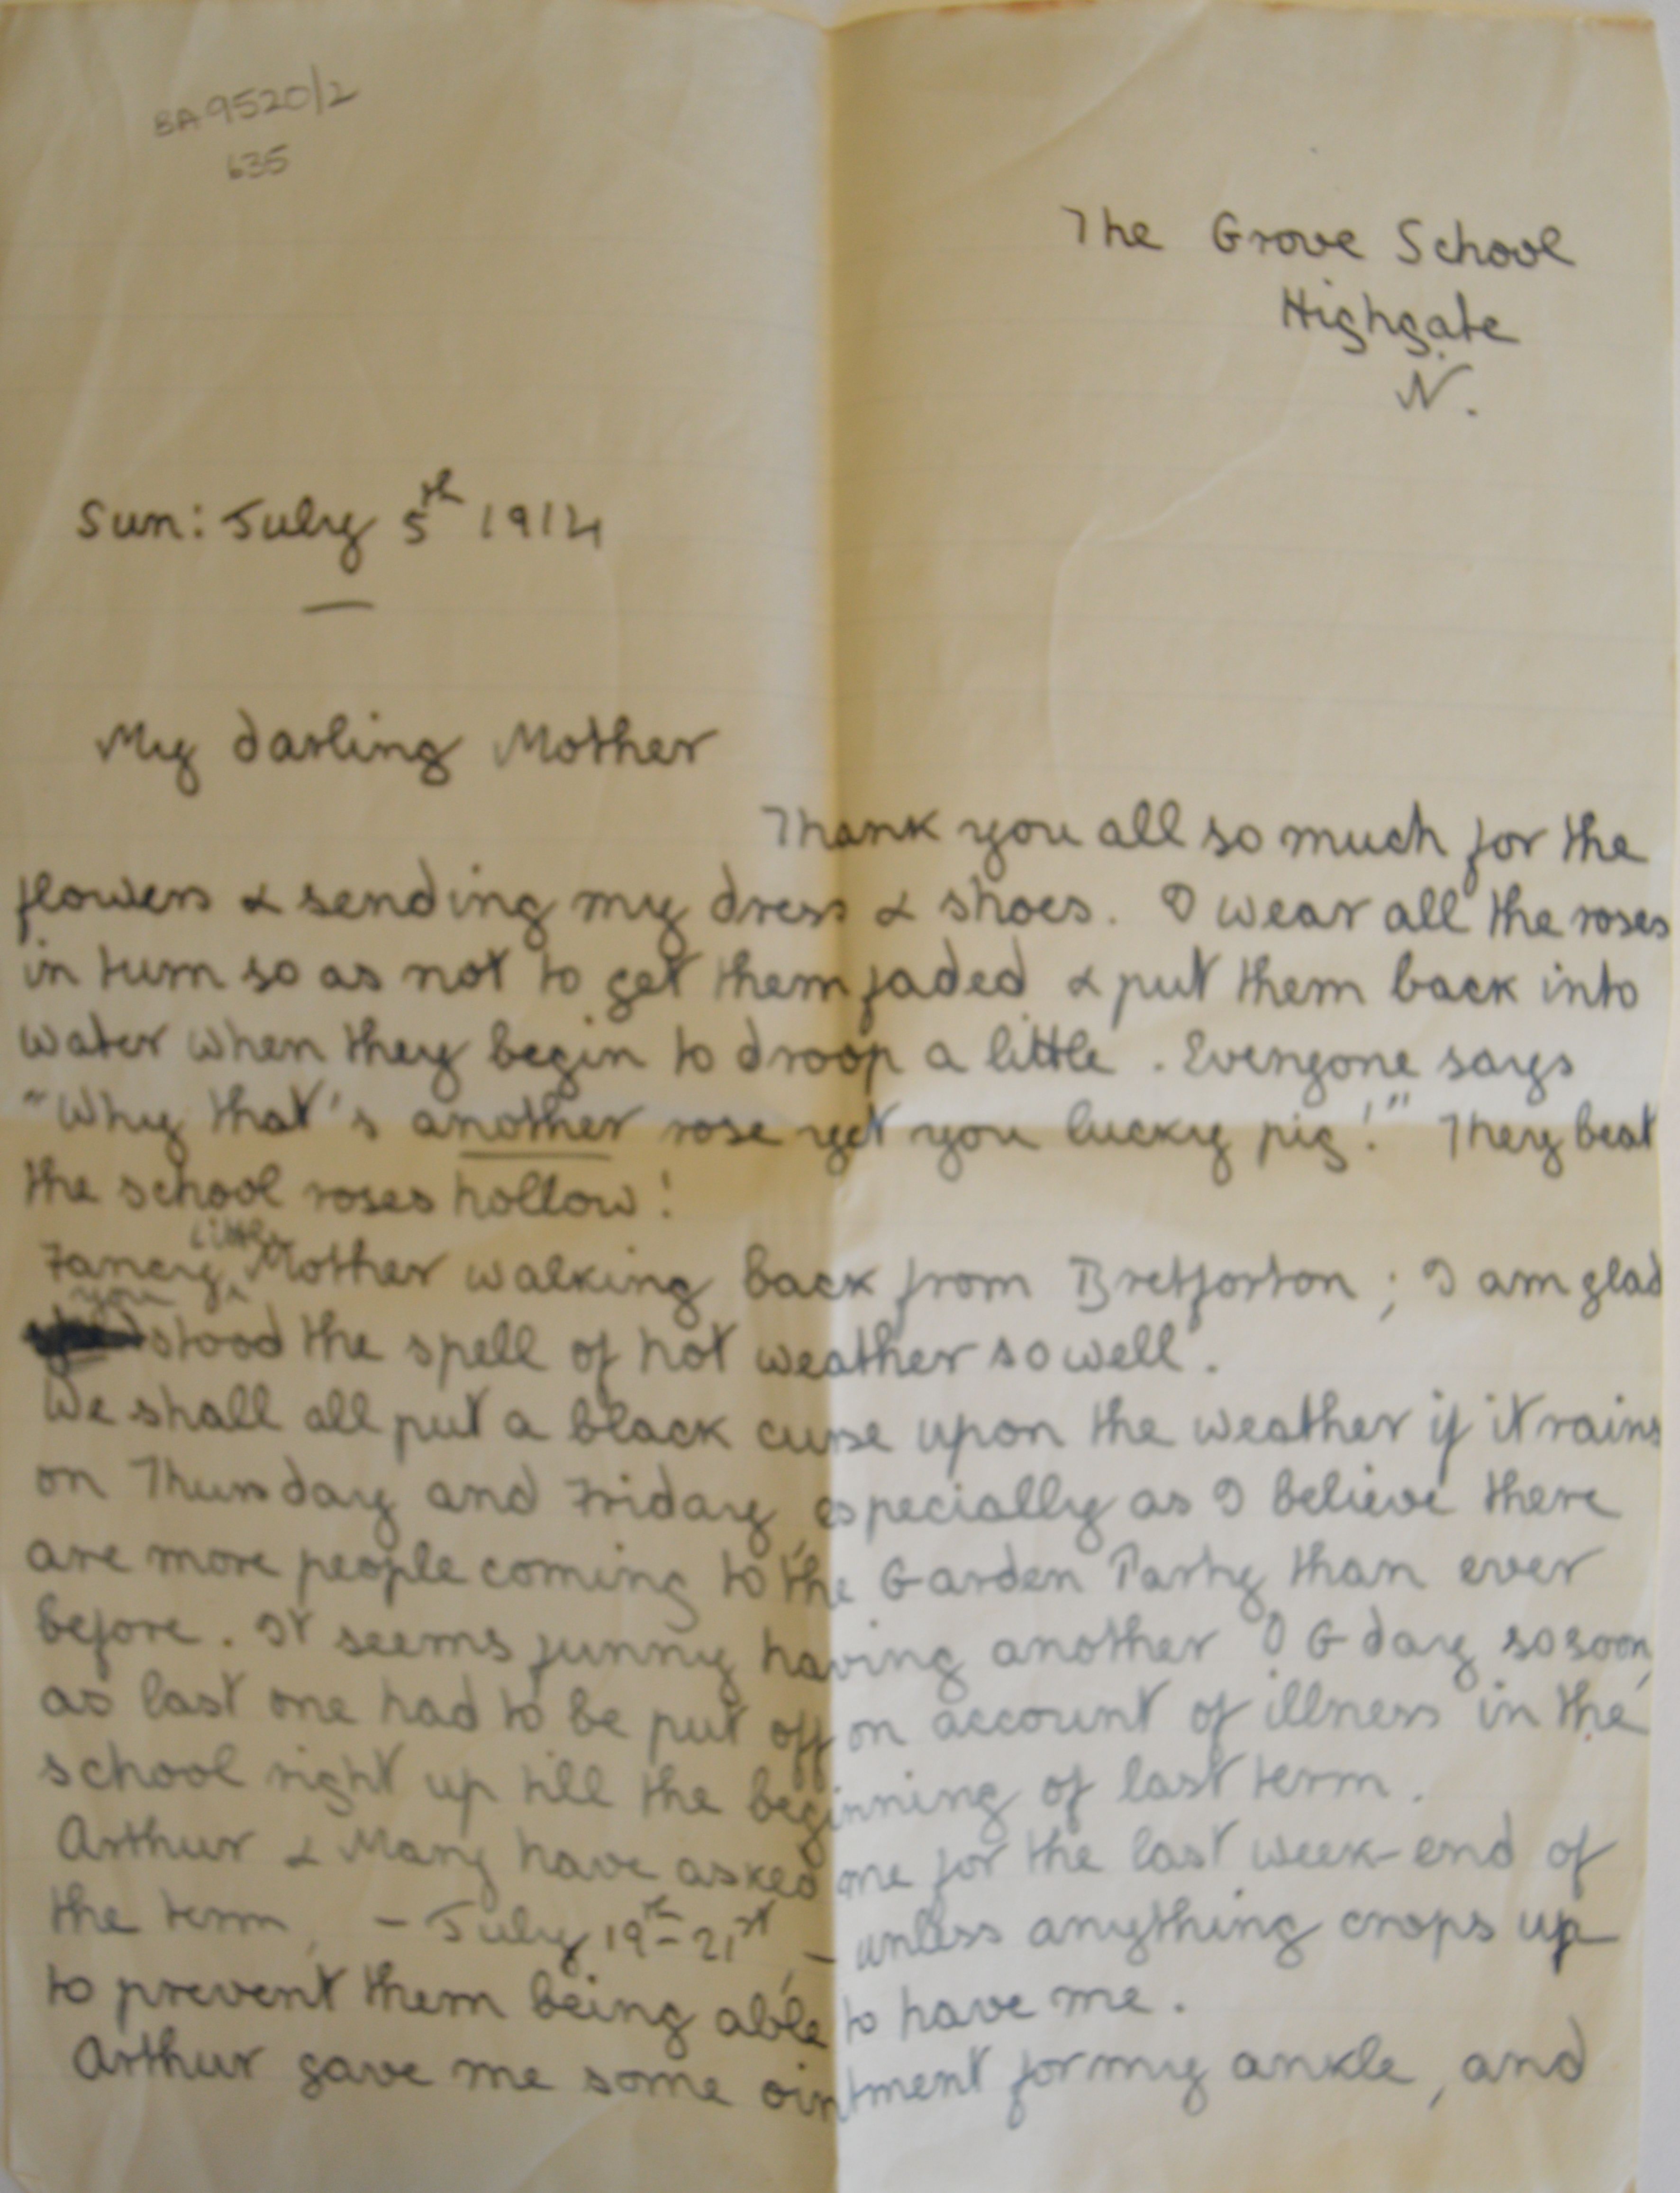 BA9520/2
635
The Grove School
Highgate
N.
Sun: July 5th 1914
My darling Mother
Thank you all so much for the
flowers & sending my dress & shoes. I wear all the roses
in turn so as not to get them faded & put them back into
water when they begin to droop a little. Everyone says
"Why that's another rose yet you lucky pig!" They beat
the school roses hollow!
Fancy little Mother walking back from Bretforton; I am glad
you stood the spell of hot weather so well.
We shall all put a black curse upon the weather if it rains
on Thursday and Friday, especially as I believe there
are more people coming to the Garden Party than ever
before. It seems funny having another O G day so soon,
as last one had to be put off on account of illness in the
school right up till the beginning of last term.
Arthur & Mary have asked me for the last week-end of
the term, - July 19th - 21st, - unless anything crops up
to prevent them being able to have me.
Arthur gave me some ointment for my ankle, and